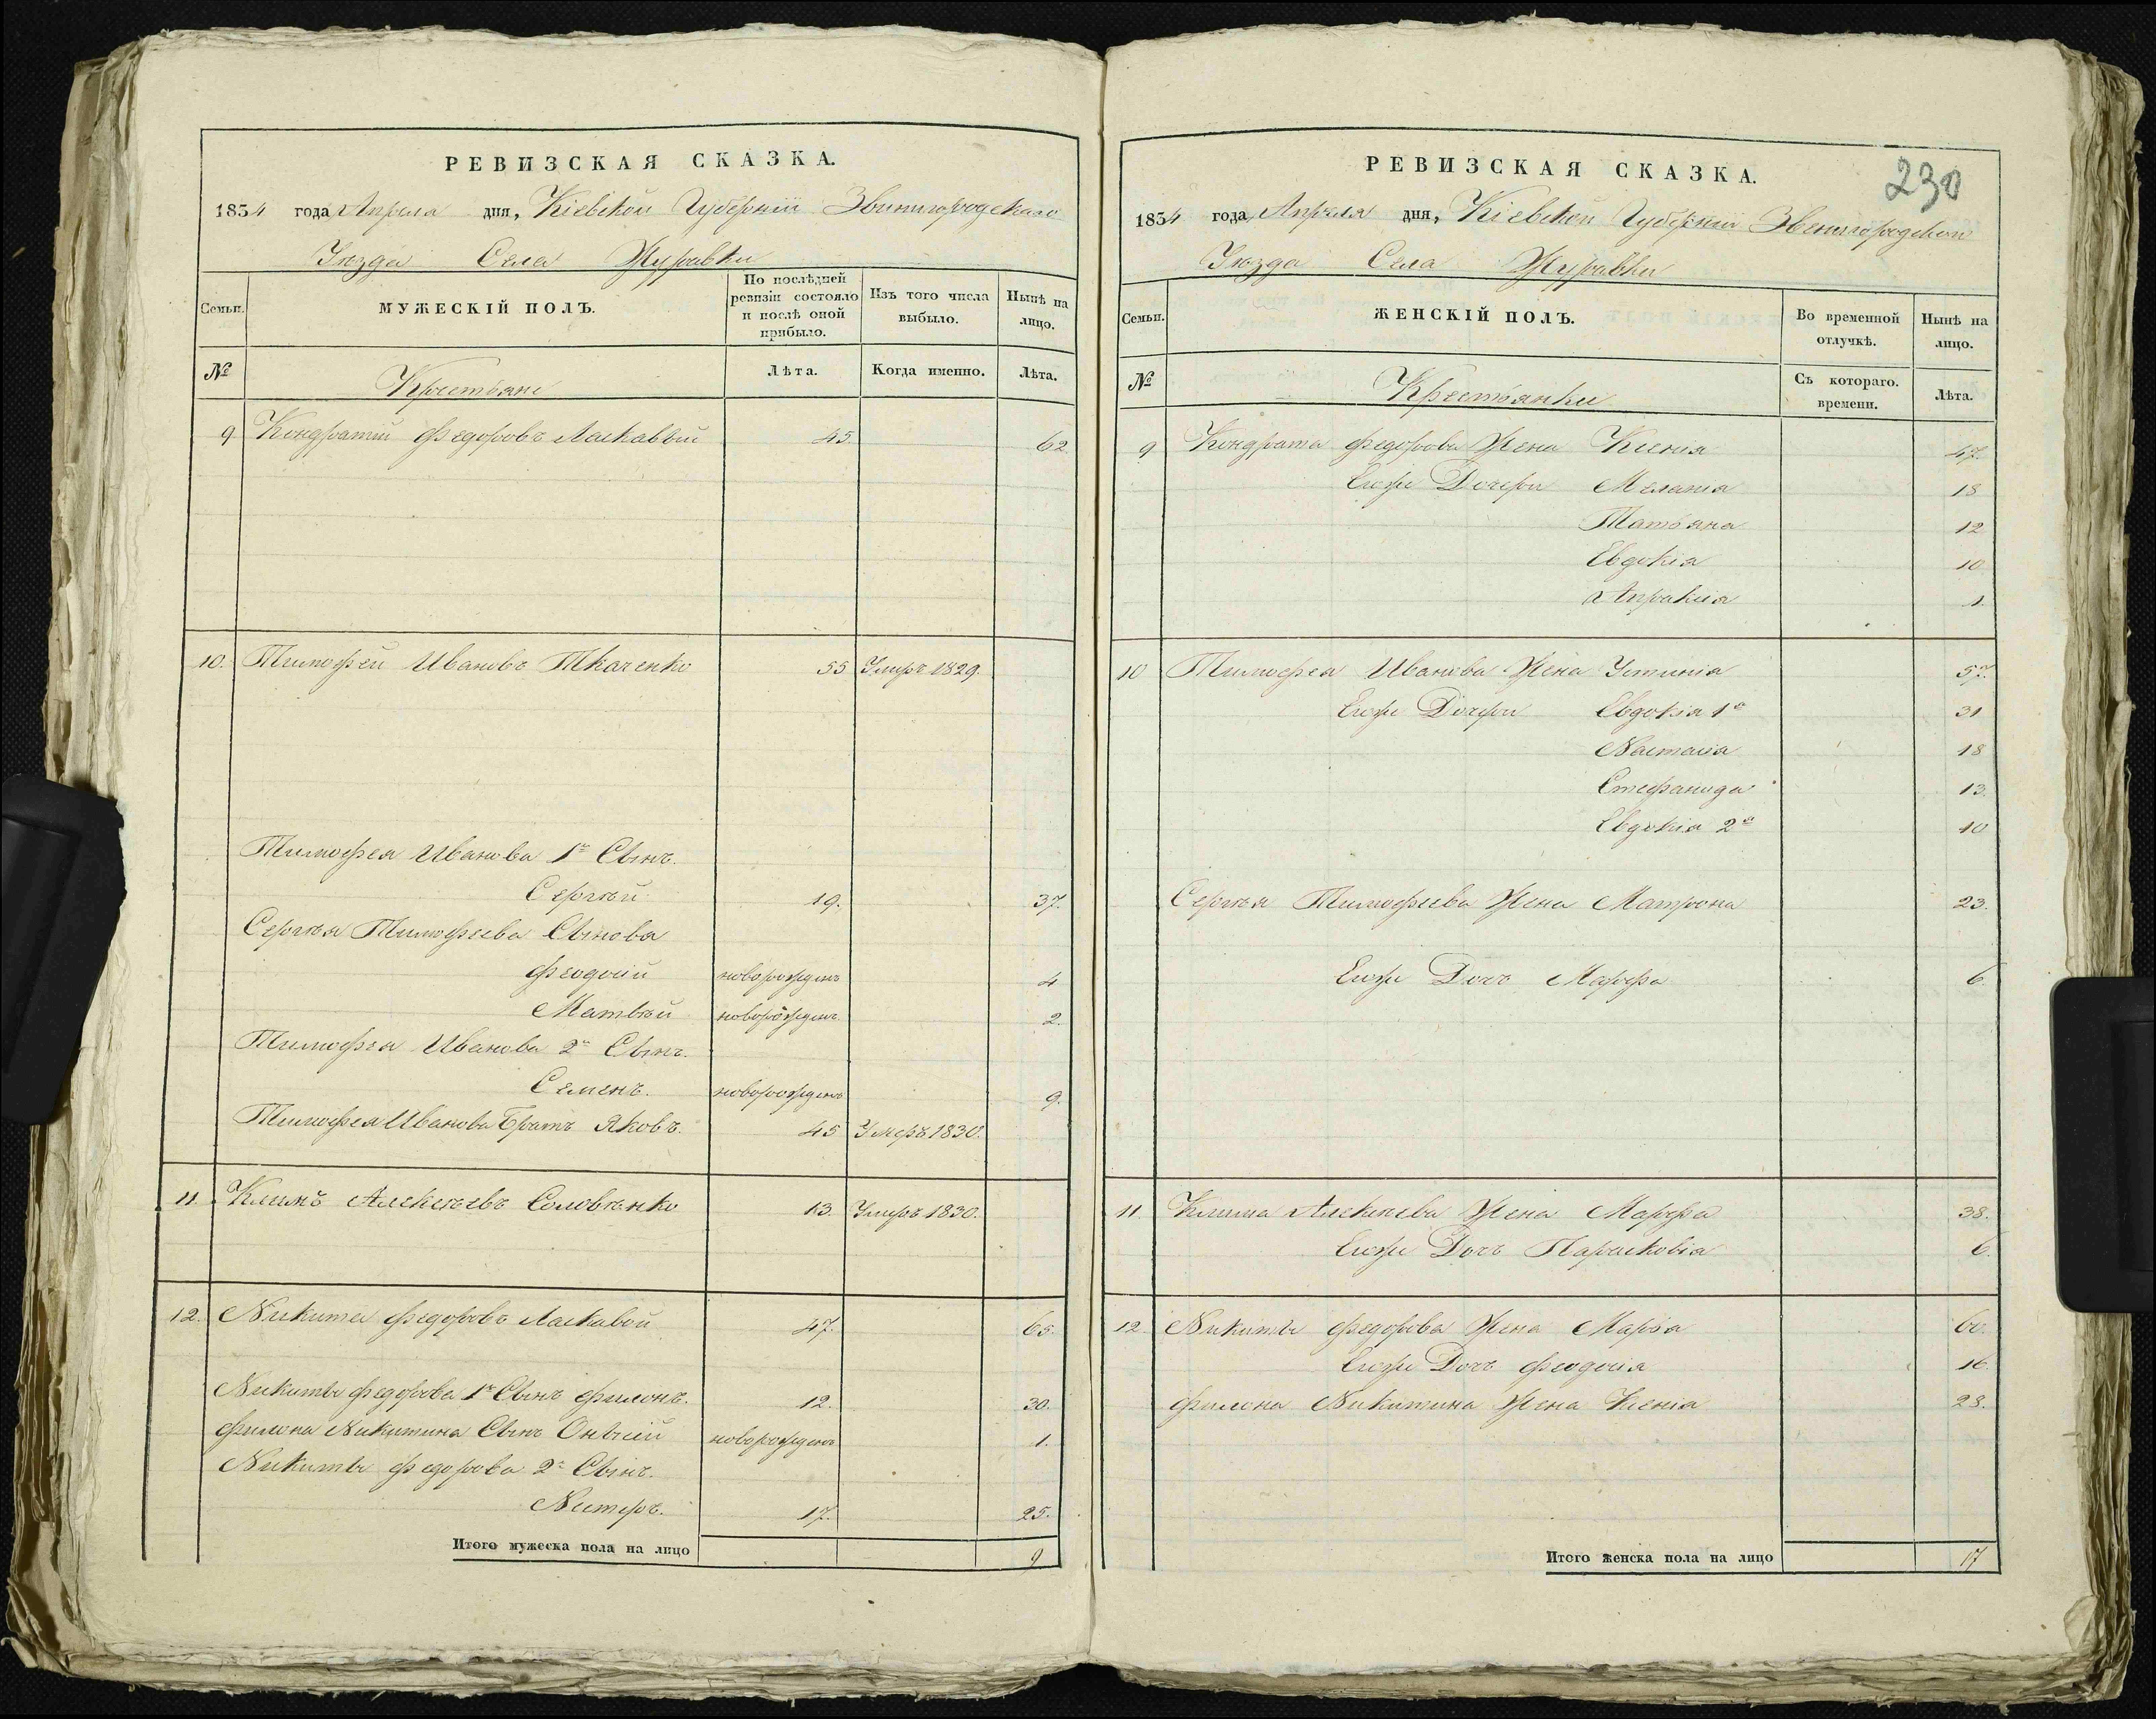 РЕВИЗСКАЯ СКАЗКА.
1834 года Апреля дня, Кіевской Губерніи Звинигородскаго
Уѣзда Села Журавки
Семьи. МУЖЕСКІЙ ПОЛЪ. По послѣдней ревизіи состояло и послѣ оной прибыло. Изъ того числа выбыло. Нынѣ на лицо.
№ Крестьяне Лѣта. Когда именно. Лѣта.
9 Кондратій Федоровъ Ласкавый 45 62
10. Тимофей Ивановъ Ткаченко 55 Умеръ 1829.
Тимофея Иванова 1й Сынъ.
Сергѣй 19. 37.
Сергѣя Тимофеева Сынова
Феодосій новорожденъ 4
Матвѣй новорожденъ 2.
Тимофея Иванова 2й Сынъ.
Семенъ. новорожденъ 9.
Тимофея Иванова Братъ Яковъ. 45 Умеръ 1830.
11. Климъ Алексѣевъ Соловѣнко 13. Умеръ 1830.
12. Никита Федоровъ Ласкавой 47. 65.
Никиты Федорова 1й Сынъ Филонъ. 12. 30.
Филона Никитина Сынъ новорожденъ 1.
Никиты Федорова 2й Сынъ.
Нестеръ. 17. 25.
Итого мужеска пола на лицо 9
230
РЕВИЗСКАЯ СКАЗКА.
1834 года Апреля дня, Кіевской Губерніи Звенигородскои
Уѣзда Села Журавки
Семьи. ЖЕНСКІЙ ПОЛЪ. Во временной отлучкѣ. Нынѣ на лицо.
№ Крестьянки Съ котораго. времени. Лѣта.
9 Кондрата Федорова Жена Ксенія 47.
Егоже Дочери Меланія 18
Татьяна 12
Евдокія 10
Апраксія 1.
10 Тимофея Иванова Жена Устинія 57.
Егоже Дочери Евдокія 1я 31
Настасія 18
Стефанида 13.
Евдокія 2я 10
Сергѣя Тимофеева Жена Матрона 23.
Егоже Дочъ Марфа 6.
11. Клима Алексѣева Жена Марфа 38.
Егоже Дочъ Парасковія 6.
12. Никиты Федорова Жена Марья 60.
Егоже Дочъ Феодосія 16
Филона Никитина Жена Ксенія 28.
Итого женска пола на лицо 17